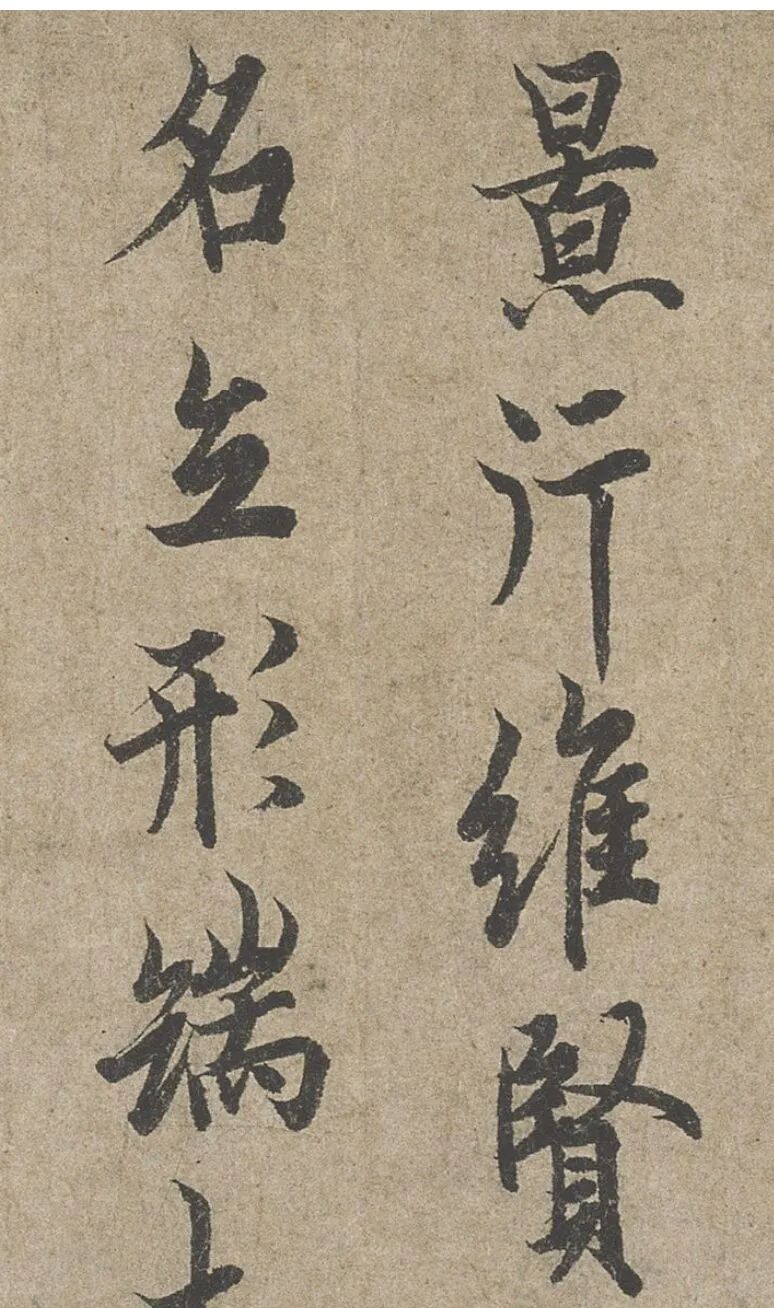 景行維賢
名立形端